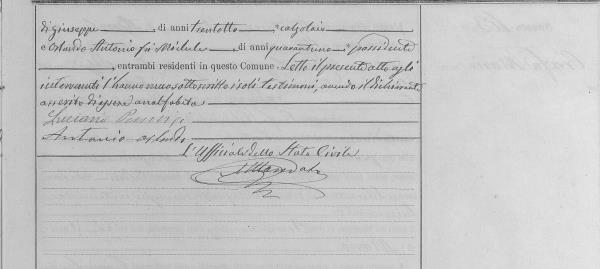 di Giuseppe, di anni trentotto, calzolaio
e Orlando Antonio fu Michele, di anni quarantuno, possidente
, entrambi residenti in questo Comune. Letto il presente atto agli
intervenuti l'hanno meco sottoscritto i soli testimoni, avendo il dichiarante
asserito di essere analfabeta
Luciano
Antonio Orlando
L'Uffiziale dello Stato Civile